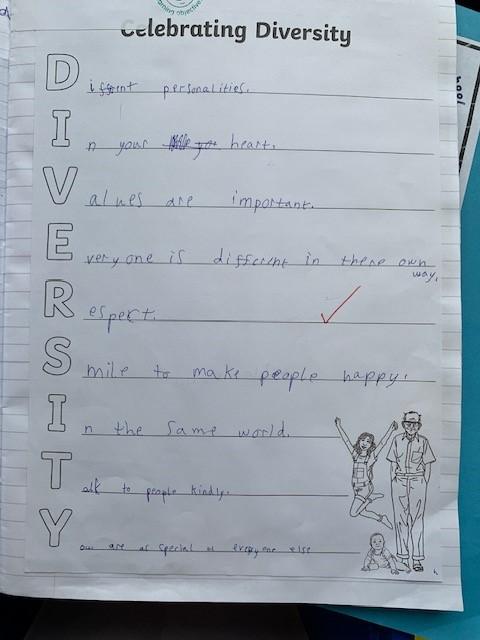 Learning objective
Celebrating Diversity
Different personalities.
In your heart.
Values are important.
Everyone is different in there own
way.
Respect.
Smile to make people happy.
In the same world.
Talk to people kindly.
You are as special as everyone else